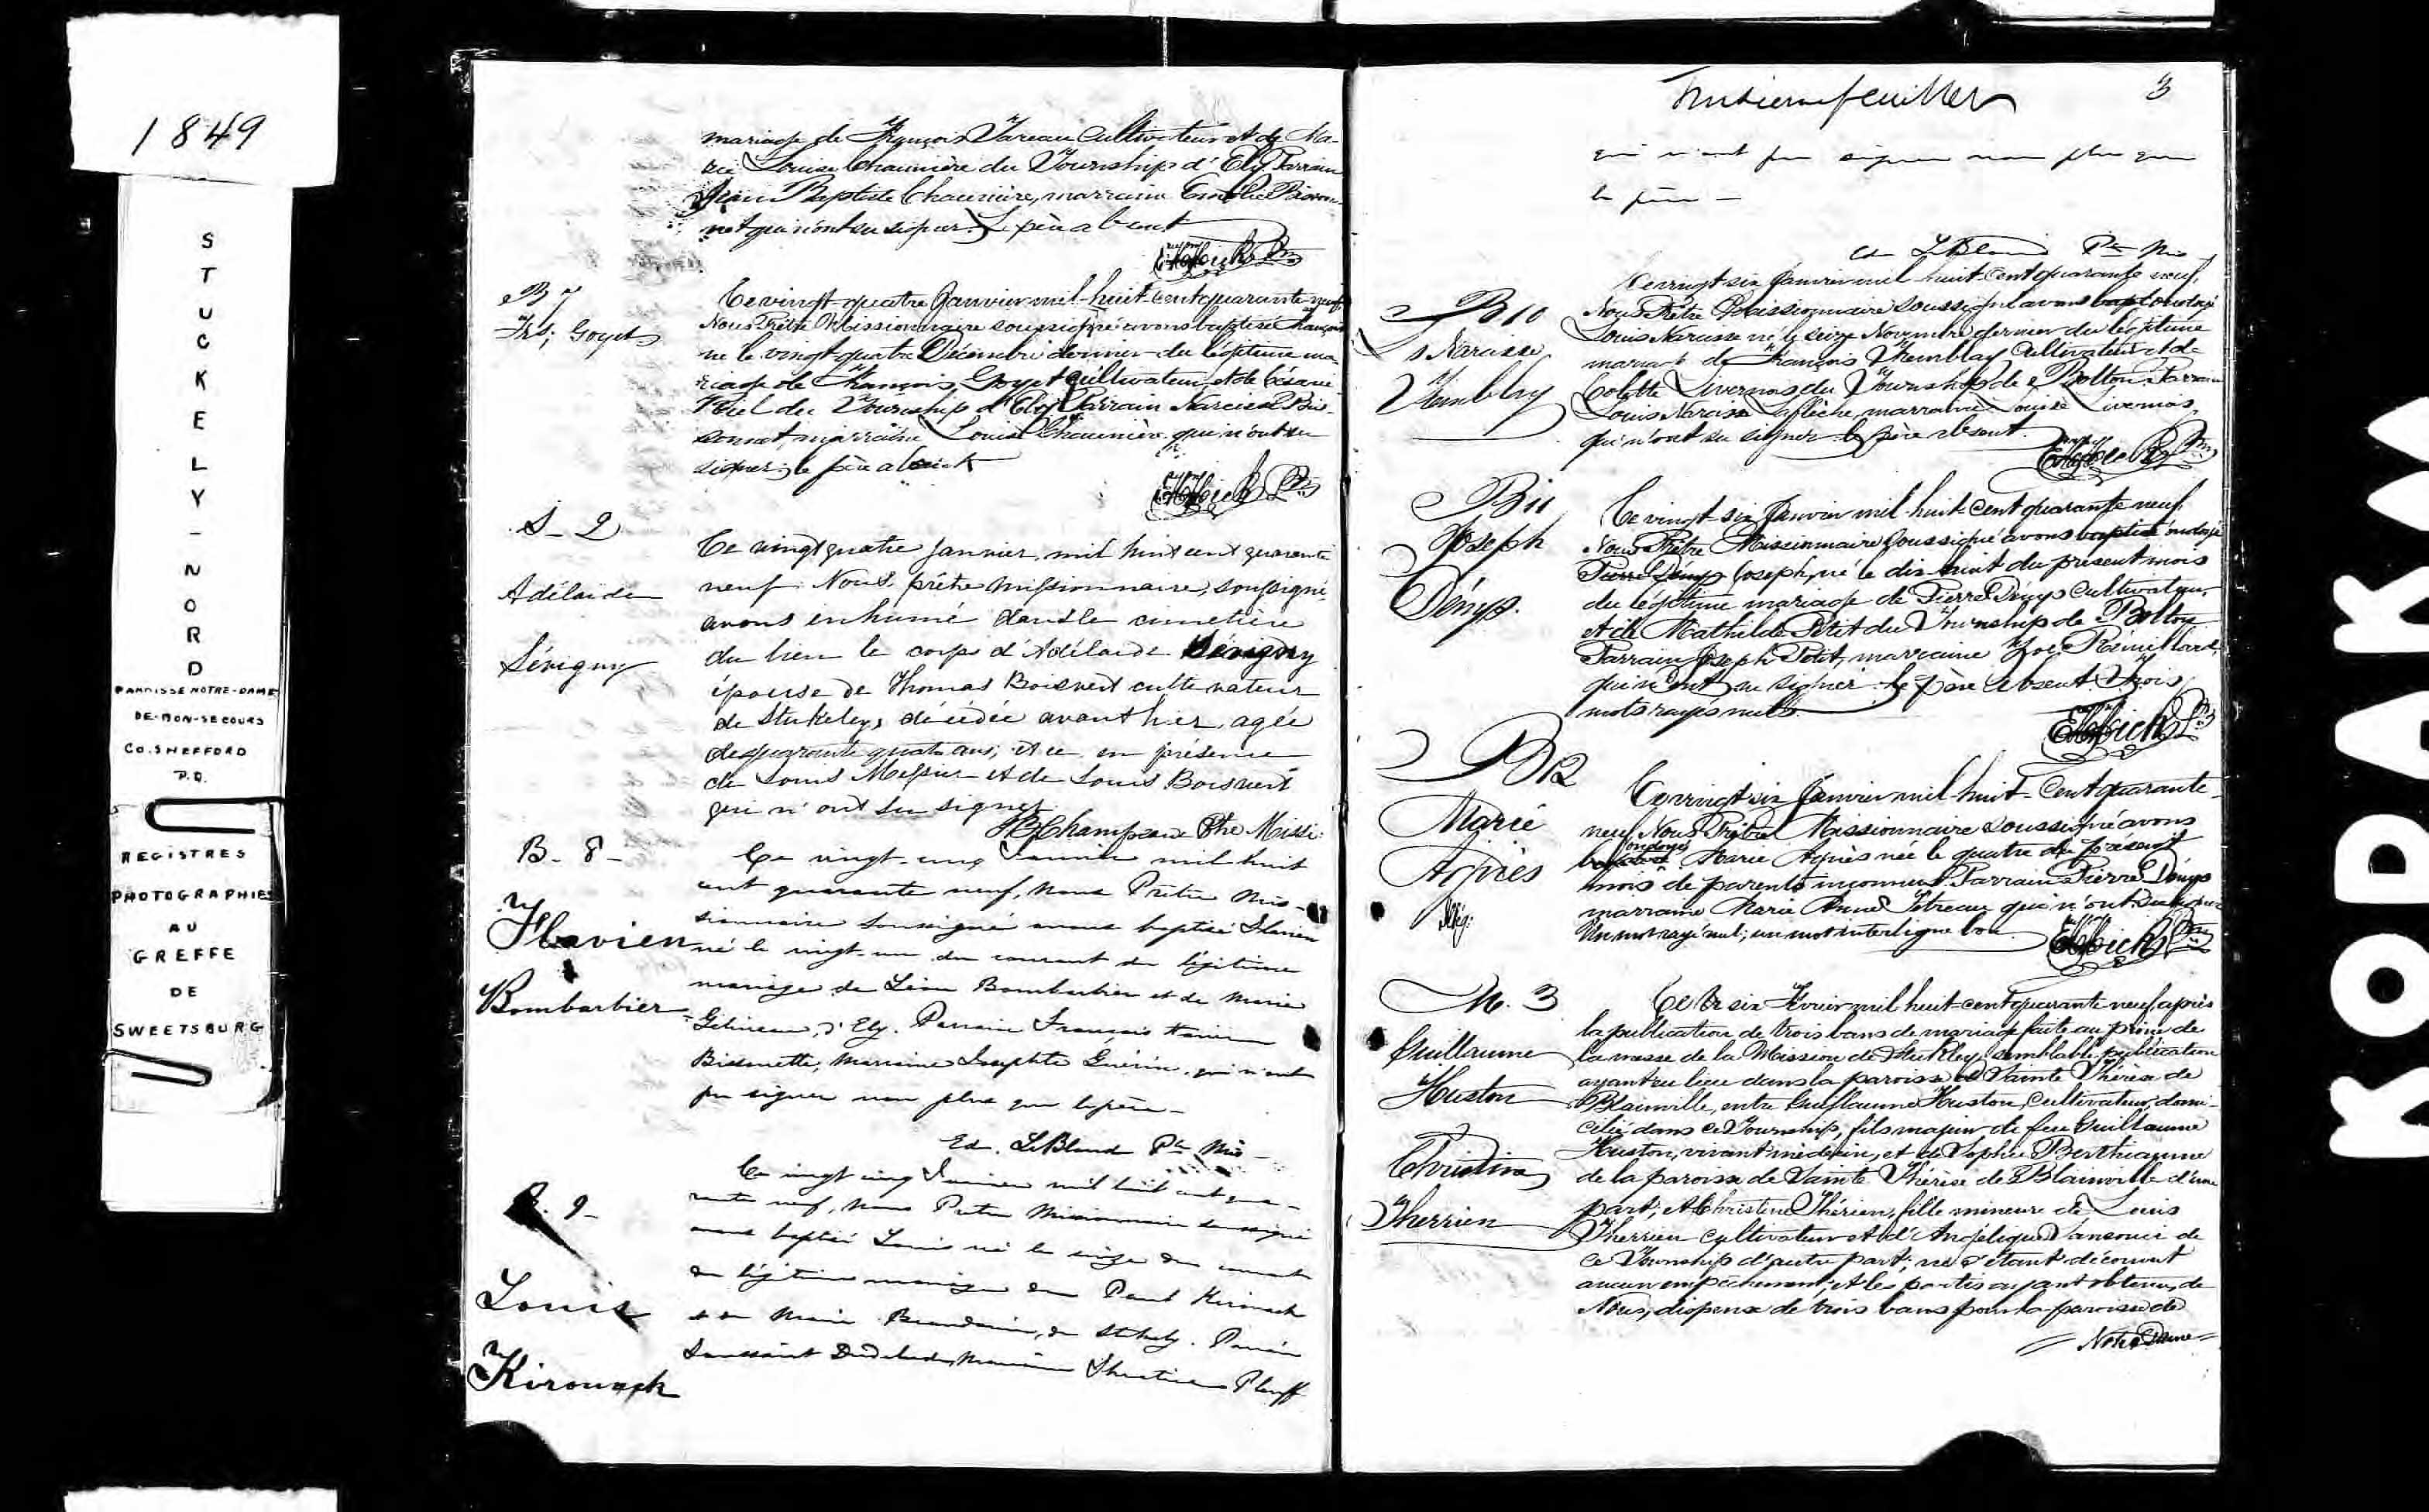 1849
S
T
U
C
K
E
L
Y
-
N
O
R
D
PAROISSE NOTRE-DAME
DE-BON-SECOURS
CO. SHEFFORD
P.Q.
REGISTRES
PHOTOGRAPHIES
AU
GREFFE
DE
SWEETSBURG
mariage de François Careau Cultivateur et de Ma-
rie Louise Chaunière du Township d'Ely Parrain
Jean Baptiste Chaunière, marraine Emélie Bisson-
net qui n'ont su signer. Le père absent
B 7
Frs; Goyet
Ce vingt-quatre Janvier mil-huit-cent quarante-neuf,
Nous Prêtre Missionnaire soussigné avons baptisé François
né le vingt-quatre Décembre dernier du légitime ma-
riage de François Goyet Cultivateur, et de Césarie
du Township d'Ely Parrain Narcisse Bis-
sonnet, marraine Louise Chaunière qui n'ont su
signer; le père absent
S-2
Adélaide
Sévigny
Ce vingt quatre janvier, mil huit cent quarante
neuf. Nous, prêtre missionnaire, soussigné,
avons inhumé dans le cimetière
du lieu le corps d'Adélaide Sévigny
épouse de Thomas Boisvert cultivateur
de Stukely, décédée avant hier, agée
de quarante quatre ans; et ce en présence
de Louis Messier et de Louis Boisvert
qui n'ont su signer.
Ptre Missi:
B-8-
Flavien
Bombarbier
Ce vingt-cinq Janvier mil huit
cent quarante neuf, Nous Prêtre Mis-
sionnaire soussigné avons baptisé Flavien
né le vingt-un du courant du légitime
mariage de Léon Bombarbier et de Marie
Gélineau, d'Ely. Parrain François Xavier
Bissonnette, Marraine Josephte Guérin, qui n'ont
pu signer non plus que le père-
Ed. LeBlond Ptre Mis-
9-
Louis
Kirouack
Ce vingt cinq Janvier mil huit cent qua-
rante neuf, Nous Prêtre Missionnaire soussigné
avons baptisé Louis né le seize du courant
du légitime mariage de Paul Kirouack
et de Marie Beaudoin, de Stukely. Parrain
Toussaint Marraine Plouff
3
qui n'ont pu signer non plus que
le père-
Ed. LeBlond Ptre Mis
B10
Ls Narcisse
Tremblay
Ce vingt-six Janvier mil-huit-cent quarante neuf,
Nous Prêtre Missionnaire soussigné avons ondoyé
Louis Narcisse né le seize Novembre dernier du légitime
mariage de François Tremblay Cultivateur et de
Colette Livernois du Township de Bolton Parrain
Louis Narcisse Laflèche, marraine Louise Livernois,
qui n'ont su signer le père absent.
B11
Joseph
Dényp.
Ce vingt-six Janvier mil-huit-cent quarante neuf
Nous Prêtre Missionnaire soussigné avons baptisé ondoyé
Pierre Dényp Joseph, né le dix-huit du présent mois
du légitime mariage de Pierre Dényp Cultivateur,
et de Mathilde Petit du Township de Bolton
Parrain Joseph Petit, marraine Zoé Rémillard,
qui n'ont su signer le père absent. Trois
mots rayés nuls.
B12
Marie
Agnès
Ce vingt six Janvier mil-huit-cent quarante-
neuf Nous Prêtre Missionnaire soussigné avons
ondoyé
Marie Agnès née le quatre du présent
mois de parents inconnus. Parrain Pierre Dényp
marraine Marie Anne Tétreau qui n'ont su signer
Un mot rayé nul; un mot interligné bon
M. 3
Guillaume
Huston
Christine
Therrien
Ce six Février mil huit-cent quarante neuf, après
la publication de trois bans de mariage faite au prône de
la messe de la Mission de Stukley, semblable publication
ayant eu lieu dans la paroisse de Sainte Thérèse de
Blainville, entre Guillaume Huston, Cultivateur, domi-
cilié dans ce Township, fils majeur de feu Guillaume
Huston, vivant médecin, et de Sophie Berthiaume
de la paroisse de Sainte Thérèse de Blainville d'une
part; et Christine Thérien, fille mineure de Louis
Therrien Cultivateur et d'Angélique Sansouci de
ce Township d'autre part; ne s'étant découvert
aucun empêchement; et les parties ayant obtenu de
Nous, dispense de trois bans pour la paroisse de
Notre Dame
KODAK